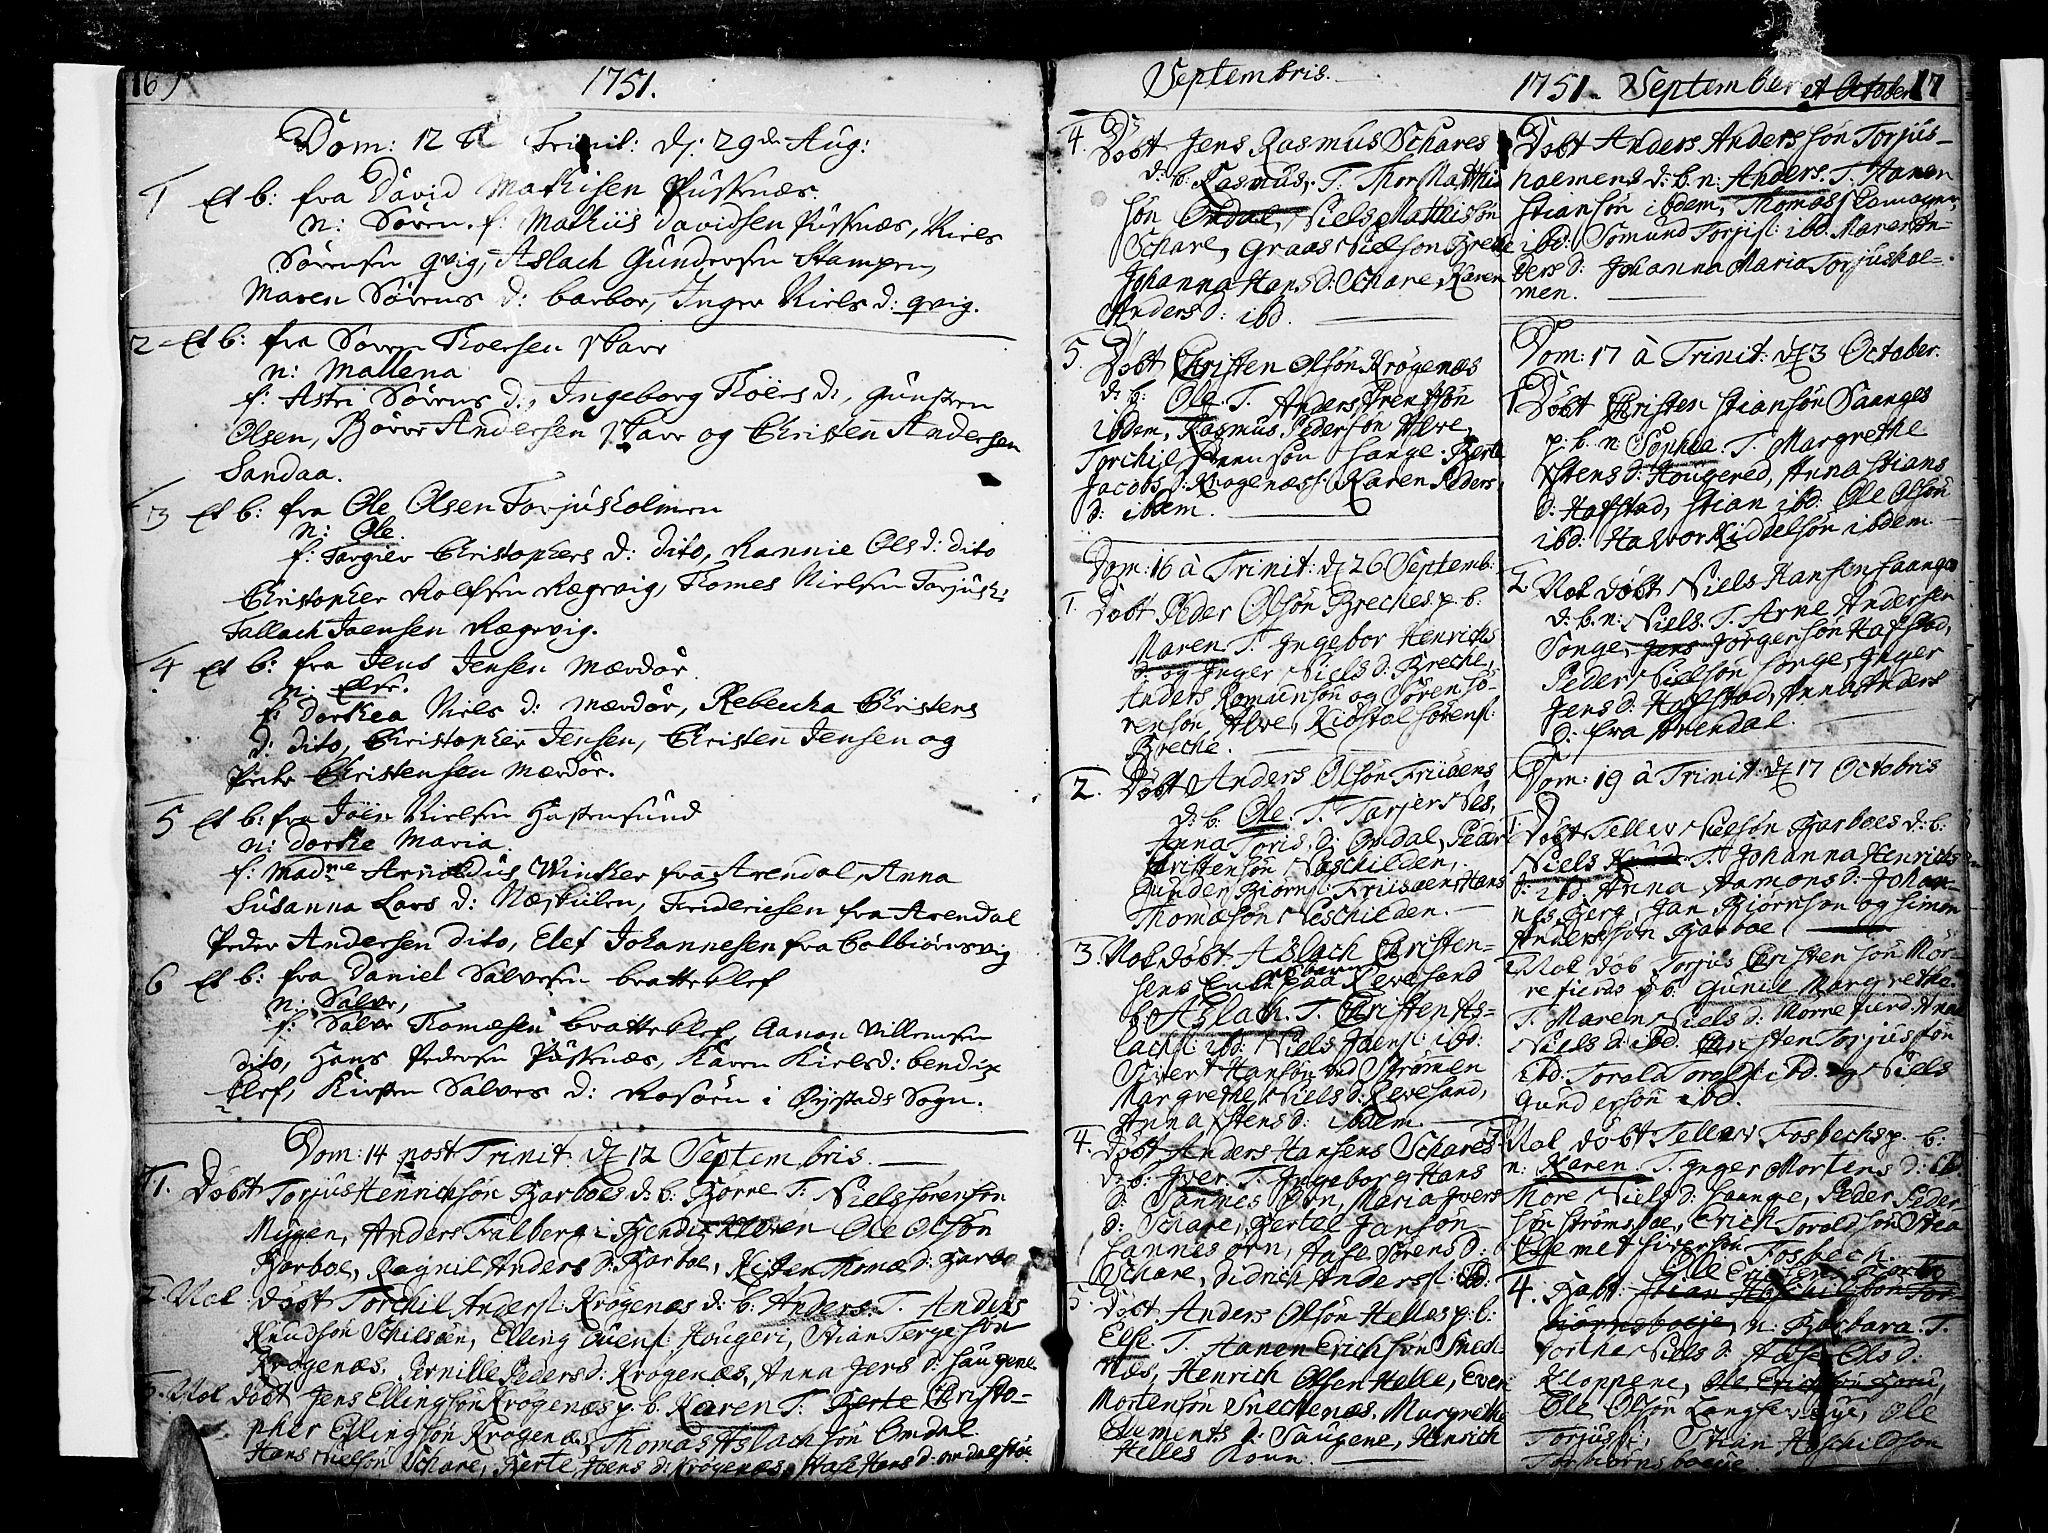 16
1751.
Dom: 12 Trinit: d: 29de Aug:
1 Et b: fra David Mathisen Püsknæs.
n: Sören. f: Mathiis Davidsen Püsknæs, Niels
Sörensen qvig, Aslach Gundersen Stampen,
Maren Sörens d: barboe, Inger Niels d: qvig.
2 Et b: fra Sören Thoersen Skare
n: Mallena
f: Astri Sörens d:, Ingeborg Thoers d:, gunsten
Olsen, Börre Andersen Skare og Christen Andersen
Sandaa.
3 Et b: fra Ole Olsen Torjusholmen
n: Ole.
f: Targier Christophers d: dito, Rannie Ols d: dito
Christopher Rolfsen Rægevig, Thomes Nielsen Torjush:
Tallach Joensen Rægevig.
4 Et b: fra Jens Jensen Mærdör
n: Else.
f: Dorthea Niels d: Mærdör, Rebecka Christens
d: dito, Christopher Jensen, Christen Jensen og
Peder Christensen Mærdör.
5 Et b: fra Joen Nielsen Hastensund
n: Dorthe Maria.
f: Madme Arnoldus Wincker fra Arendal, Anna
Susanna Lars d: Næskilen, Friderichsen fra Arendal
Peder Andersen dito, Elef Johannesen fra Colbiörnsvig
6 Et b: fra Daniel Salvesen bratteklef
n: Salve,
f: Salve Thomæsen bratteklef, Aanon Villemsen
dito, Hans Pedersen Püsknæs, Karen Nielsd: bendix
klef, Kirsten Salves d: Rosöen i Öystads Sogn.
Dom: 14 post Trinit: d 12 Septembris.
1. Döbt Torjus Henrichsön Barboes d: b: Börre T. Niels Sörensön
Mÿren, Anders Falberg i Bendixkleven Ole Olsön
Barboe, Ragnil Anders d: Barboe, Kisten Thomæ d: Barbo
2. Noch döbt Torchil Anders: Krögenæs d: b: Anders. T. Anders
Knudsön Schilsöen, Elling Evens: Hougeri, Stian Tergesön
Krögenæs, Pernille Peders d: Krogenæs, Anna Jens d: Saugene
3. Nok döbt Jens Ellingsön Krögenæs p. b. Karen T. Berte Christo-
pher Ellingsön Krögenæs, Thomas Aslachsön Omdal
Hans Nielsön Schare, Berte Jens d: Krögenæs, Aase Hans d: omdalstö:
Septembris.
4. Döbt Jens Rasmus Schares
d: b: Rasmus, T. Thor Matthi
sön Omdal, Niels Mathisön
Schare, Graas Nielson Brekke
Johanna Hans d: Schare, Karen
Anders d: ibd.
5. Döbt Christen Olsön Krögenæs
d: b: Ole. T. Anders Brentsön
ibdem, Rasmus Pedersön Alve,
Torchil Svensön Sange. Berte
Jacobs d: Krogenæs: Karen Peders
d: ibdem.
Dom: 16 à Trinit: d 26 Septemb:
1. Döbt Peder Olsön Breches p. b:
Maren T. Ingebor Henrichs
d: og Inger Niels d: Breche,
Anders Romaensön og Sören Sö-
rensön Alve, Kiöstol Sörens:
Breche.
2. Döbt Anders Olsön Friisöens
d: b: Ole. T. Tarjer Nes,
Anna Toris d: Omdal, Peder
Christensön Neschilden,
Gunder Biörns: Friisöen Hans
Thomæsön Neschilden.
3. Nok döbt Aslach Christen-
sens Enke paa Revesand
b: Aslach. T. Christen As-
lachs: ibd: Niels Joens: ibd:
Sivert Hansön ved Strömen
Margrethe Niels d: Revesand,
Anna Stens d: ibdem.
4. Döbt Anders Hansens Schares
d: b: Iver. T. Ingeborg Hans
d: Sannes örn, Maria Ivers
d: Schare, Bertel Jansön
Sannes örn, Aase Sörens d:
Schare, Didrich Anderss: ibd:
5. Döbt Anders Olsön Helles p: b:
Else T. Hanen Erichsön Snech
næs, Henrich Olsen Helle, Even
Mortensön Snechenæs, Margrethe
Clements d: Saugene, Henrich
Helles Konn.
1751. September et October 17
Döbt Anders Anderssön Torjus-
holmens d: b. n: Anders T. Hanen
Stiansön ibdem, Thomas
ibd: Somund Torjis: ibd. Maren Sön-
ders d: Johanna Maria Torjushol-
men.
Dom: 17 à Trinit: d 3 October.
1. Döbt Christen Stiansön Saanges
p. b. n: Sophia. T. Margrethe
Stens d: Hougered, Anna Stians
d: Hafstad, Stian ibd: Ole Olsön
ibd: Halvor Kiddelsön ibdem.
2. Nok döbt Niels Hansön Saange
d: b. n: Niels. T. Arne Andersen
Songe, Jens Jörgensön Hafstad,
Peder Nielsön Songe, Inger
Jens d: Hafstad, Anna Anders
d: fra Arendal.
Dom: 19 à Trinit: d 17 Octobris
1. Döbt Tellev Nielsön Barboes d: b:
Niels T. Johanna Henrichs
d: ibd, Anna Aamons d: Johan-
nes Berg, Jan Bjornson og Simon
Anderssön Barboe.
2. Nok döb Torjus Christensön Mör-
refierds p b: Gunil Margrethe.
T. Maren Niels d: Morrefierd. Anne
Niels d: ibd: Christen Torjussön
ibd: Torald Toralds: ibd. og Niels
Gundersön ibd.
3. Nok döbt Tellev Fosbechs p. b:
n: Karen. T. Inger Mortens d: ib.
More Niels d: Saange, Peder Peder-
sön Strömsboe, Erich Toraldsön Stöa
Clemet Siversön Fosbech.
4. Babt: Stian Aschildsön Tor-
biörnsboeje, n: Barbara. T.
Dorthe Niels d: Aase Ols d:
Kloppene, Ole Erichsön
Ole Olsön Langsevæje, Ole
Torjuss:, Stian Aschildsön
Torbiörnsboeje.